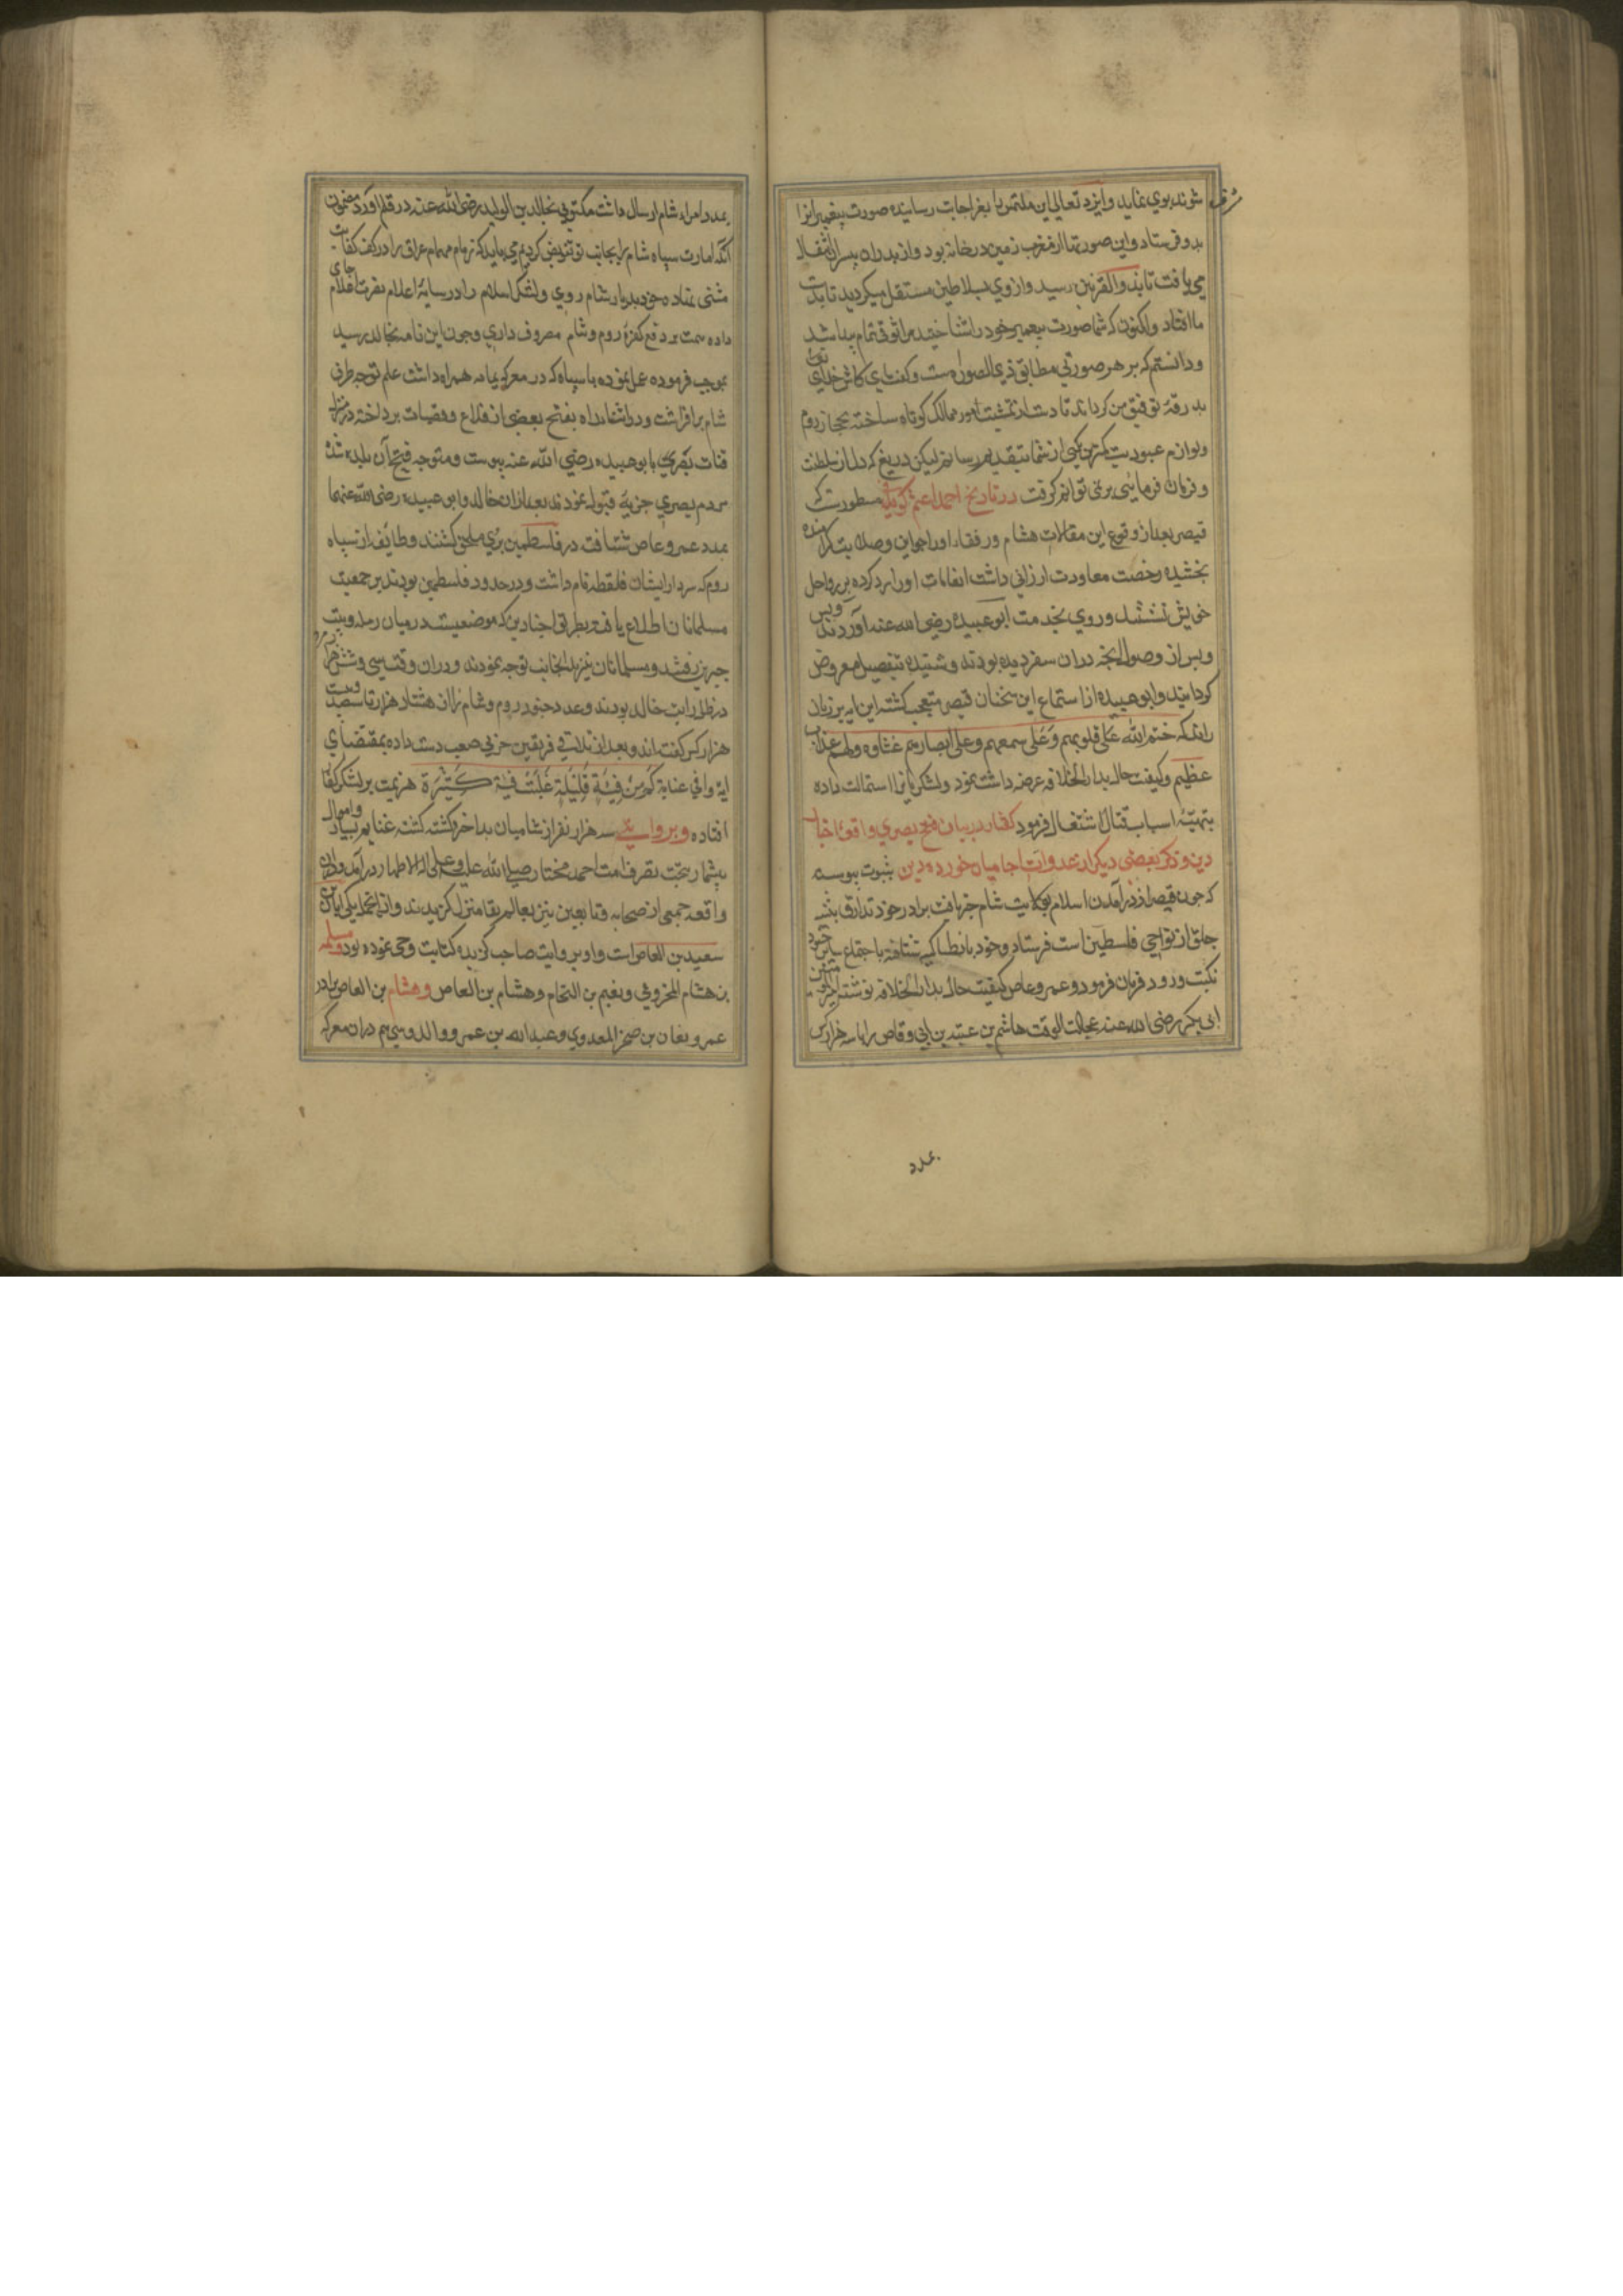 شوند بوي نمايد و ايزد تعالي اين ملتمس را بعز اجابت رسانيده صورت پيغمبرانرا
بدو فرستاد و اين صورتها از مغرب زمين در خانه بود و از پدران به پسران انتقال
مي يافت تا بذو القرنين رسيد و از وي بسلاطين مستقل ميكرديد تا بدست
ما افتاد و اكنون كه شما صورت پيغمبر خود را شناختيد مرا وثوقي تمام پيدا شد
و دانستم كه بر هر صورتي مطابق ذي الصوره است و كفت اي كاش خداي
بدرقهٔ توفيق من كرداند تا دست از تمشيت امور ممالك كوتاه ساخته
و لوازم عبوديت كمترين كسي از شما بتقديم رسانم ليكن دريغ كه دل از سلطنت
و فرمان فرمايي بر نمي توانم كرفت در تاريخ احمد اعثم كوفي مسطورست كه
قيصر بعد از وقوع اين مقالات هشام و رفقاء او را جواين و صلات
بخشيده رخصت معاودت ارزاني داشت انعامات او را رد كرده بر رواحل
خويش نشستند و روي بخدمت ابو عبيده رضي الله عنه آوردند
و پس از وصول انچه دران سفر ديده بودند و شنيده بتفصيل معروض
كردانيدند و ابو عبيده از استماع اين سخنان قيصر متعجب كشته اين ايه بر زبان
راند كه ختم الله على قلوبهم و على سمعهم و على ابصارهم غشاوه ولهم عذاب
عظيم و كيفيت حال بدار الخلافه عرضه داشت نمود و لشكريانرا استمالت داده
بتهيئه اسباب قتال اشتغال فرمود كفتار در بيان فتح بصري و واقعهٔ اجنا
دين و ذكر بعضي ديكر از غدوات حاميان حوزه دين بثبوت پيوسته
كه چون قيصر از در آمدن اسلام بولايت شام خبر يافت برادر خود تذارق بثنيه
جلق از نواحي فلسطين است فرستاد و خود بانطاكيه شتافته باجتماع ساير جنود
نكبت ورود فرمان فرمود و عمرو عاص كيفيت حال بدار الخلافه نوشته
ابي بكر رضي الله عنه عجالت الوقت هاشم بن عتبه بن ابي وقاص را با سه هزار كس
بمدد
بمدد امراء شام ارسال داشت مكتوبي بخالد بن الوليد رضي الله عنه در قلم آورد مضمون
آنكه امارت سپاه شام را بجانب تو تفويض كرديم مي بايد كه زمام مهام عراق را در كف كفايت
مثني نهاده خود بديار شام روي و لشكر اسلام را در سايهٔ اعلام نصرت اعلام جاي
داده همت بر دفع كفرهٔ روم و شام مصروف داري و چون اين نامه بخالد رسيد
بموجب فرموده عمل نموده با سپاه كه در معركه يمامه همراه داشت علم توجه بطرف
شام برافراشت و در اثناء راه بفتح بعضي از قلاع و قصبات پرداخته در منزل
قنات بصري بابو عبيده رضي الله عنه پيوست و متوجه فتح آن بلده شد
مردم بصري جزيه قبول نمودند بعد ازان خالد و ابو عبيده رضي الله عنهما
بمدد عمرو عاص شتافت در فلسطين بوي ملحق كشتند و طائفه از سپاه
روم كه سردار ايشان قلقط نام داشت و در حدود فلسطين بودند بر جمعيت
مسلمانان اطلاع يافته بطرف اجنادين كه موضعيست در ميان رمله و بيت
جبرين رفتند و مسلمانان نيز بدانجانب توجه نمودند و دران وقت سي و شش هزار مرد
در ظل رايت خالد بودند و عدد جنود روم و شام را از هشتاد هزار تا صد و بيست
هزار كس كفته اند و بعد از تلاقي فريقين حربي صعب دست داده بمقتضاي
ايه وافي عنايه كم من فئة قليلة غلبت فئة كثيرة هزيمت بر لشكر كفار
افتاده و بروايتي سه هزار نفر از شاميان بد اختر كشته كشته غنايم بسيار و اموال
بيشمار بتحت تصرف امت احمد مختار صلي الله عليه و علي اله الاطهار در آمد و دران
واقعه جمعي از صحابه و تابعين نيز بعالم بقا منزل كزيدند و از انجمله يكي ابان بن
سعيد بن العاص است و او بروايت صاحب كزيده كتابت وحي نموده بود و سلمه
بن هشام المخزومي و نعيم بن النحام و هشام بن العاص و هشام بن العاص برادر
عمرو و نعمان بن صخر العدوي و عبد الله بن عمرو الدوسي هم دران معركه